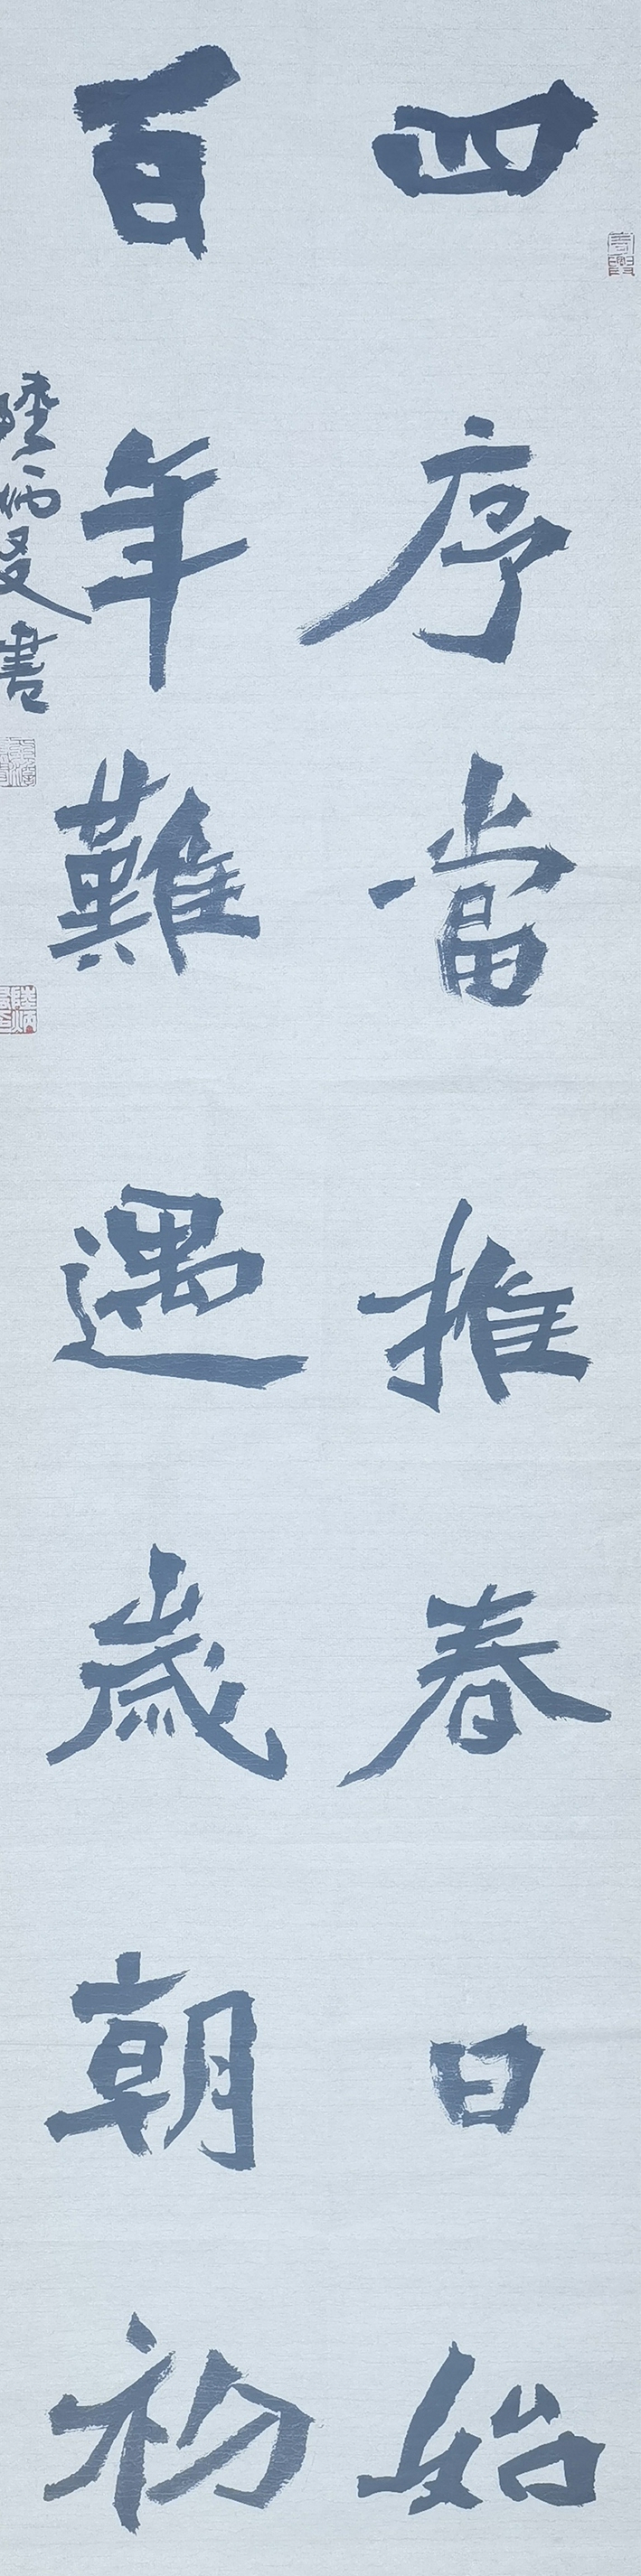 四序當推春日始
百年難遇歲朝初
陸炳文書